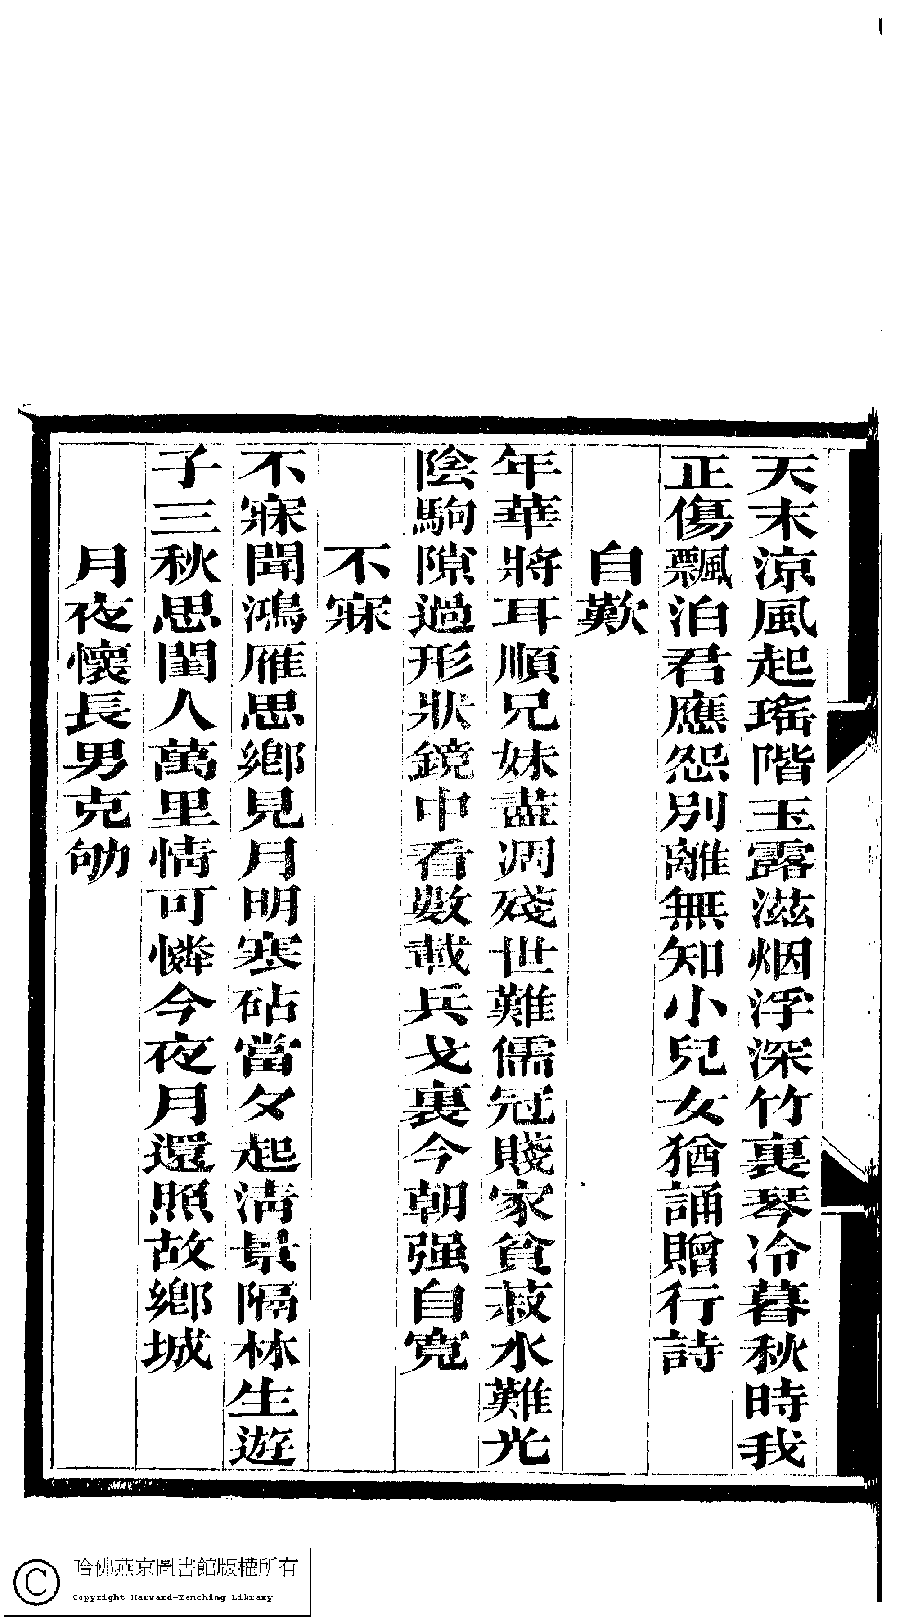 天末涼風起瑤階玉露滋烟浮深竹裏琴冷暮秋時我
正傷飄泊君應怨別離無知小兒女猶誦贈行詩
自歎
年華將耳順兄妹盡凋殘世難儒冠賤家貧菽水難光
陰駒隙過形狀鏡中看數載兵戈裏今朝强自寬
不寐
不寐聞鴻雁思鄉見月明寒砧當夕起淸景隔林生遊
子三秋思閨人萬里情可憐今夜月還照故鄉城
月夜懷長男克劬
哈佛燕京圖書館版權所有
Copyright Harvard-Yenching Library